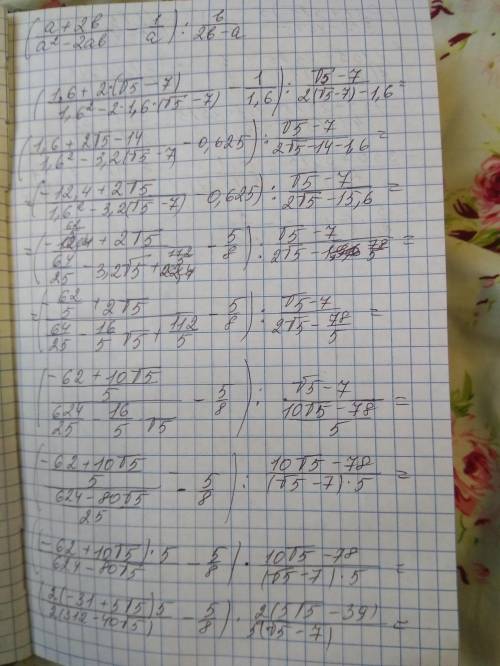 (a+2b / a²-2ab - 1/a) : b / 2b-a
(1,6+2·(√5-7) / 1,6²-2·1,6·(√5-7) - 1/1,6) : √5-7 / 2(√5-7)-1,6 =
(1,6+2√5-14 / 1,6²-3,2(√5-7) - 0,625) : √5-7 / 2√5-14-1,6 =
(-12,4+2√5 / 1,6²-3,2(√5-7) - 0,625) : √5-7 / 2√5-15,6 =
= (-62/5+2√5 / 64/25-3,2√5+112/5 - 5/8) : √5-7 / 2√5-78/5 =
= (-62/5+2√5 / 64/25-16/5√5+112/5 - 5/8) : √5-7 / 2√5-78/5 =
(-62+10√5 / 5 / 624/25-16/5√5 - 5/8) : √5-7 / 10√5-78 / 5 =
(-62+10√5 / 5 / 624-80√5 / 25 - 5/8) : 10√5-78 / (√5-7)·5 =
((-62+10√5)·5 / 624-80√5 - 5/8) · 10√5-78 / (√5-7)·5 =
(2(-31+5√5)5 / 2(312-40√5) - 5/8) · 2(5√5-39) / 5(√5-7) =